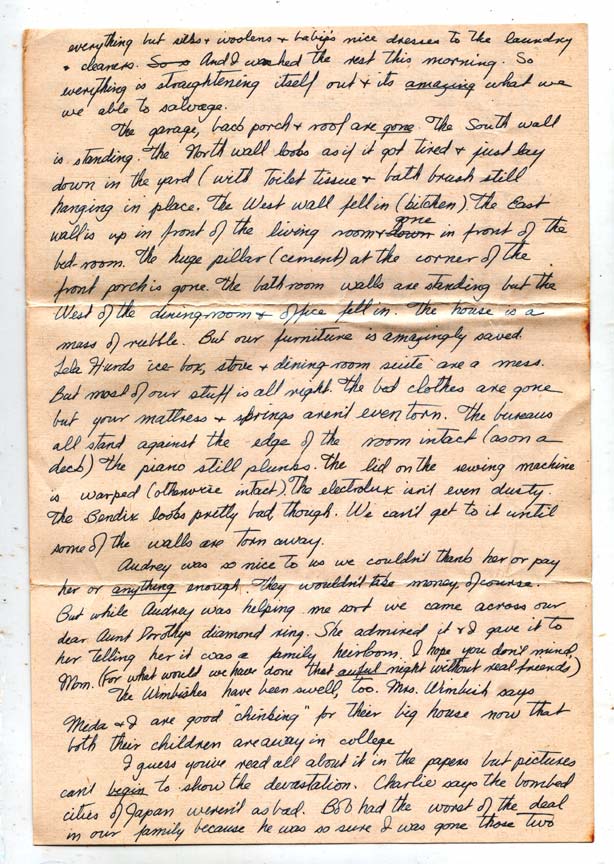 everything but silks & woolens & baby's nice dresses to the laundry
& cleaners. So s And I washed the rest this morning. So
everything is straightening itself out & its amazing what we
we able to salvage.
The garage, back porch & roof are gone. The South wall
is standing. The North wall looks as if it got tired & just lay
down in the yard (with toilet tissue & bath brush still
hanging in place. The West wall fell in (kitchen). The East
wall is up in front of the living room & down gone in front of the
bed room. The huge pillar (cement) at the corner of the
front porch is gone. The bathroom walls are standing but the
West of the diningroom & office fell in. The house is a
mass of rubble. But our furniture is amazingly saved.
Lela Hurds ice-box, stove & dining room suite are a mess.
But most of our stuff is all right. The bed clothes are gone
but your mattress & springs aren't even torn. The bureaus
all stand against the edge of the room intact (as on a
deck) The piano still plunks. The lid on the sewing machine
is warped (otherwise intact). The electrolux isn't even dusty.
The Bendix looks pretty bad though. We can't get to it until
some of the walls are torn away.
Audrey was so nice to us we couldn't thank her or pay
her or anything enough. They wouldn't take money, of course.
But while Audrey was helping me sort we came across our
dear Aunt Dorothys diamond ring. She admired it & I gave it to
her telling her it was a family heirloom. I hope you don't mind,
Mom. (For what would we have done that awful night without real friends)
The Wimbishes have been swell, too. Mrs. Wimbish says
Meda & I are good "chinking" for their big house now that
both their children are away in college
I guess you've read all about it in the papers but pictures
can't begin to show the devastation. Charlie says the bombed
cities of Japan weren't as bad. Bob had the worst of the deal
in our family because he was so sure I was gone those two